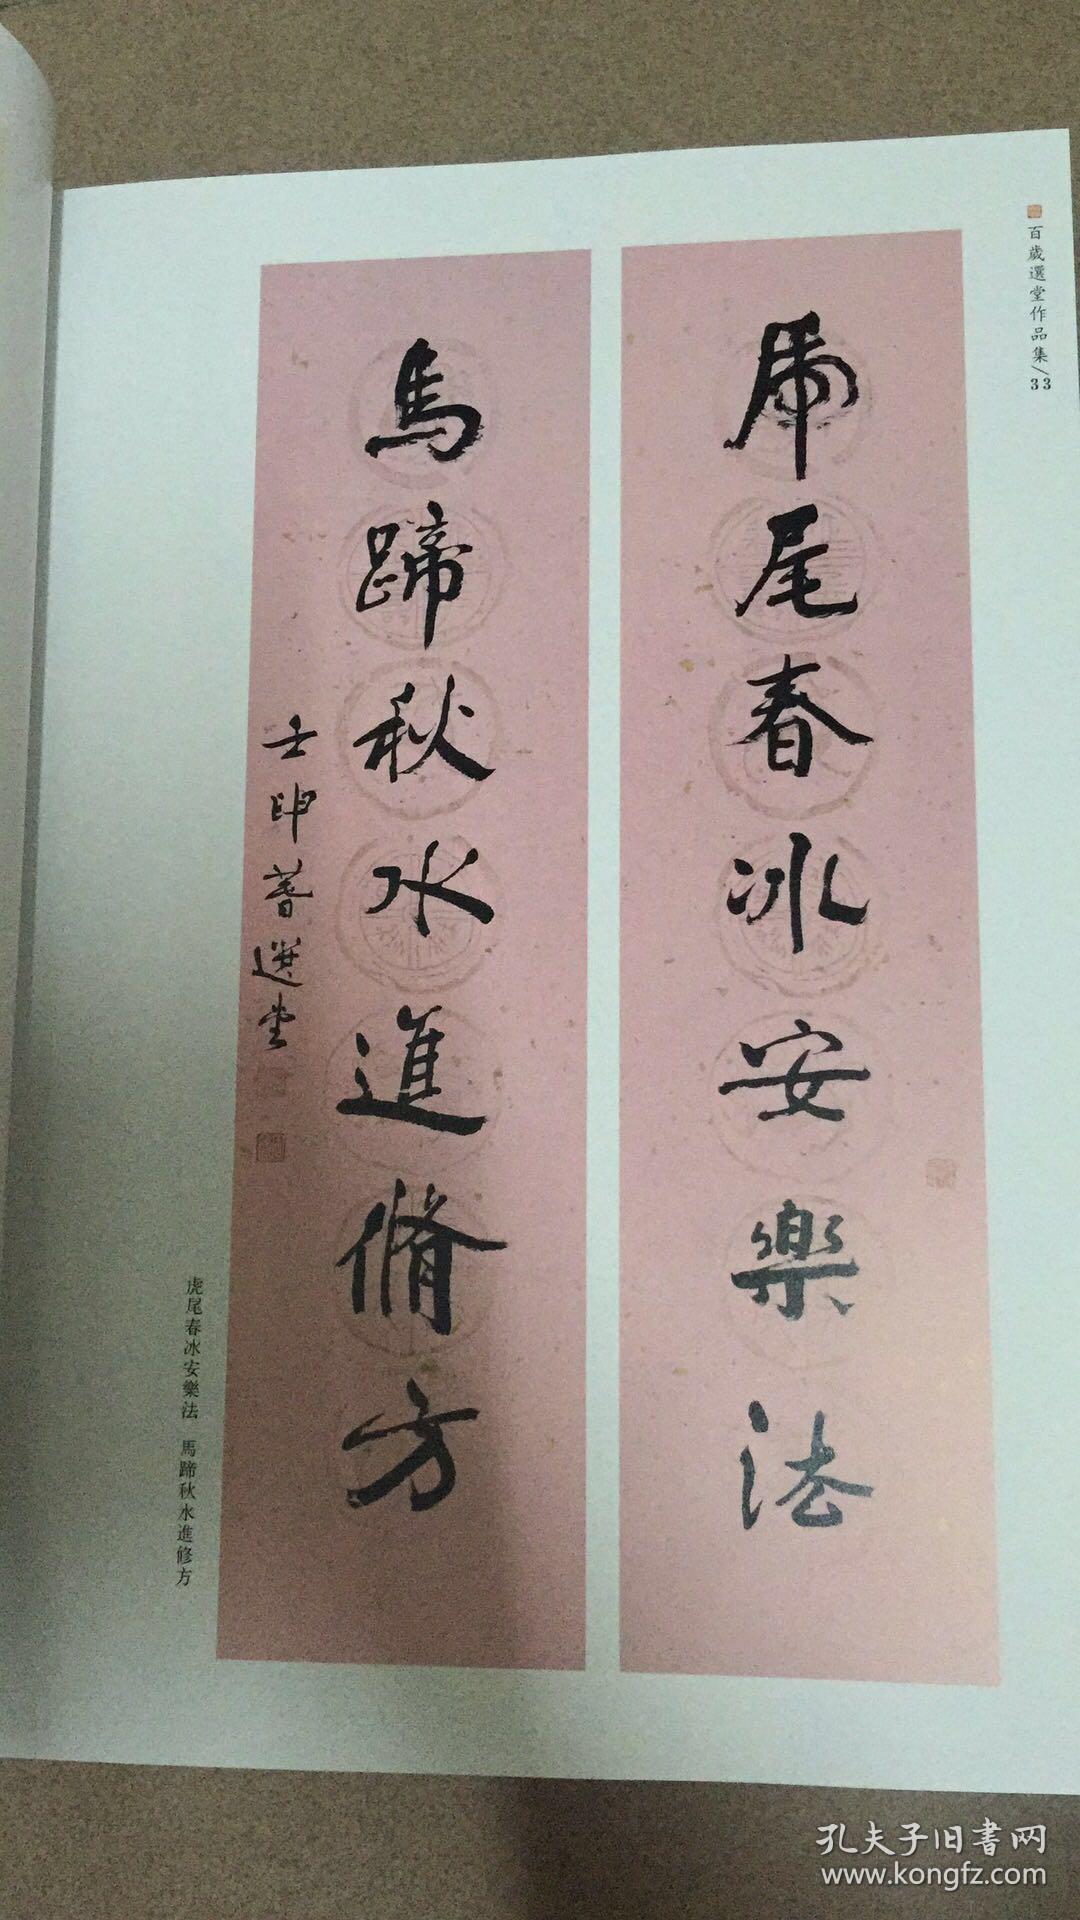 百歲選堂作品集/33
虎尾春冰安樂法
馬蹄秋水進脩方
壬申暮選堂
虎尾春冰安樂法 馬蹄秋水進修方
孔夫子旧书网
www.kongfz.com